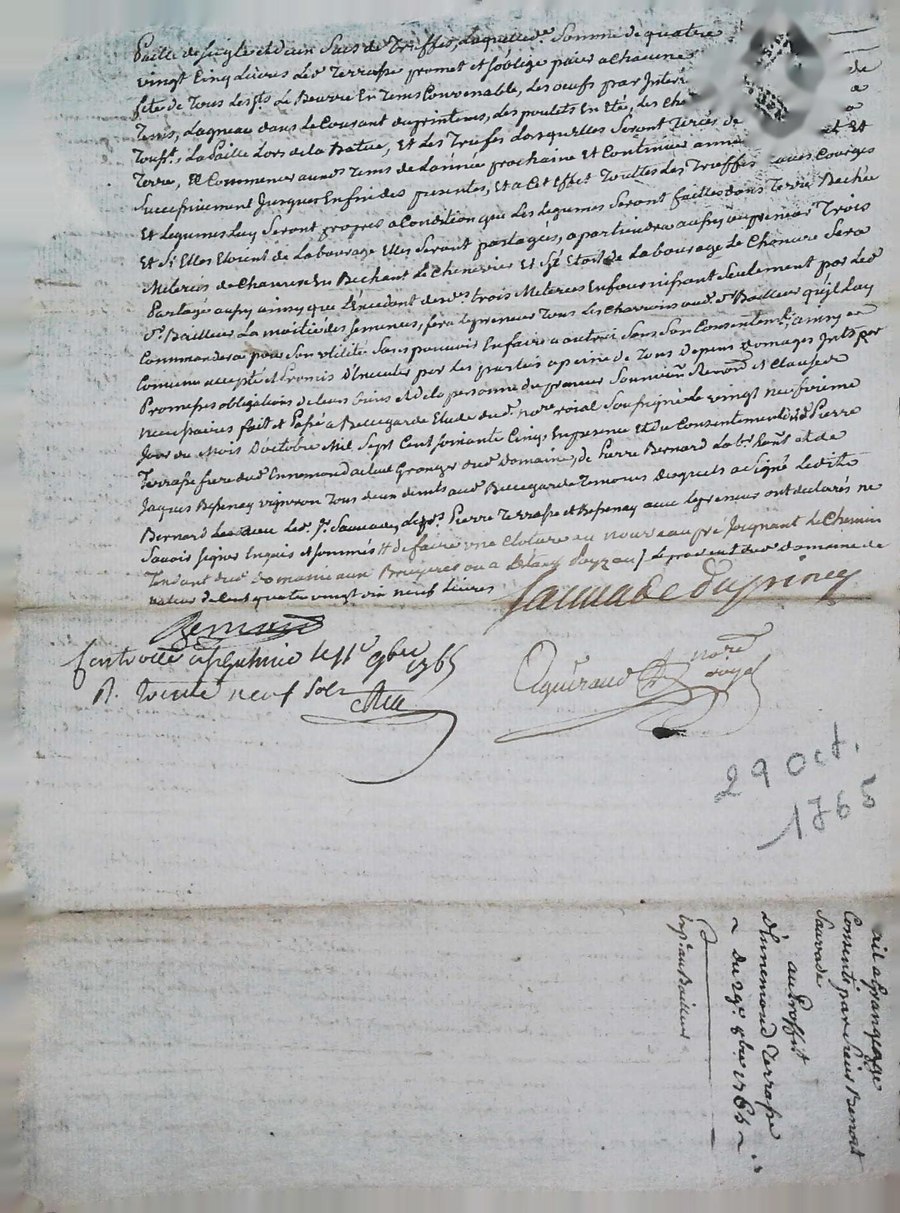 Paille de seigle et d'un Sacs de Truffes, Laquelle de. Somme de quatre
vingt Cinq Livres led Terrasse promet et soblige paier a chacune
fête de Tous les sts Le Beurre En Tems Convenable, Les oeufs par Inter
Tems, Lagneau dans le Courant du printems, des poulets En Eté, Les
Toust. La Paille Lors de la Batue, Et Les Trufes Lorsquelles Seront Tirées de
Terre, Et Commencer aud. Tems de L'année prochaine Et Continuer anné Et
Successivement Jusques Enfin des presentes, Et a Cet Effet Toutes Les Truffes Courges
Et Legumes Luy Seront propres a Condition que Les Legumes Seront faittes dans Terre Bechée
Et Si Elles Etoient de Labourage Elles Seront partagées, apartiendra aussy au preneur Trois
Meterées de Chanvre En Bechant Le Chenevier Et Sil Etoit de Labourage Le Chanvre Sera
Partagé aussy ainsy que L'Excedant des trois Meterées En fournissant Seulement par Led
Sr. Bailleur La moitié des Semences, fera le preneur Tous Les Charrois aud. Sr Bailleur qu'il Luy
Commandera pour Son utilité Sans pouvoir En faire a autruy Sans Son Consentemt. ainsy
Convenu accepté et Promis d'Executer par Les parties a peine de Tous Depens Domages Intts par
Promesses obligations de leurs biens et de la personne du preneur Renond et Clause
necessaires fait et Passé a Beauregarde Etude du d. nore. roial Soussigné Le vingt neufvieme
Jour du Mois D'octobre Mil Sept Cent Soixante Cinq, En presence et du Consentement de Pierre
Terrasse frere dud Ennemond actuel Granger dud Domaine, de Pierre Bernard Labr. et de
Jaques Besseney vigneron Tous deux dud Beauregarde Temoins Desquels a Signé Ledit
Bernard avec led. Sr. Sauvade, Lesds. Pierre Terrasse et Besseney avec Le preneur ont declarés ne
Savoir Signer Enquis et Sommés # de faire une Cloture au nouveau pré Joignant Le Chemin
Tendant dud Domaine aux Bruyeres ou a Le present dud domaine de
valeur de Cent quatre vingt dix neuf Livres
Sauvade Duprincy
Bernard
Controllé a le 11e 9bre 1765
R. Trente neuf Sols
nore
royal
29 oct.
1765
ail a Grangeage
Consenti par Sieur Benoit
Sauvade
au Proffit
d'Ennemond Terrasse
~ Du 29e. 8bre 1765 ~
Exp: au Bailleur